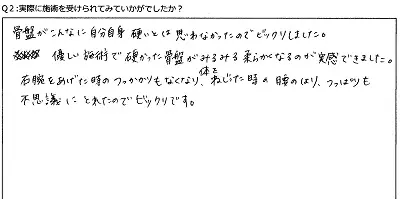 Q2:実際に施術を受けられてみていかがでしたか?
骨盤がこんなに自分自身硬いとは思わなかったのでビックリしました。
優しい施術で硬かった骨盤がみるみる柔らかくなるのが実感できました。
右腕をあげた時のつっかかりもなくなり、体をねじった時の腰のはり、つっぱりも
不思議にとれたのでビックリです。